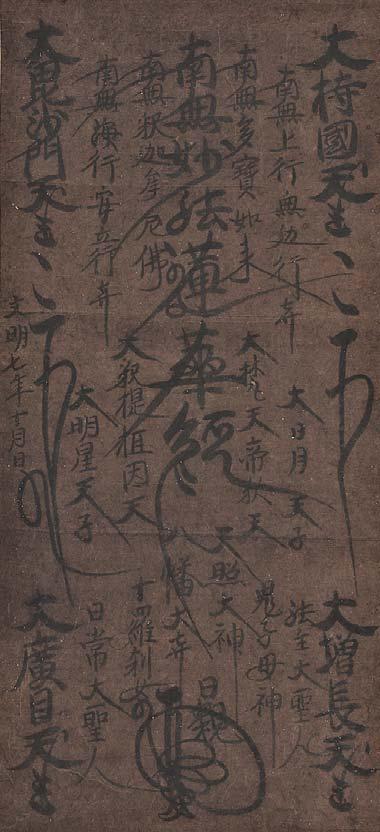 大持國天王
南無上行無辺行𦬇
南無多寶如来
南無妙法蓮華經
南無釈迦牟尼佛
安立行𦬇
大毘沙門天王
大日月天子
大梵天帝釈天
天照大神
八幡大𦬇
大釈提桓因天
大明星天子
文明七年
月日
大増長天王
大聖人
鬼子母神
日親
羅刹女
日常大聖人
大廣目天王